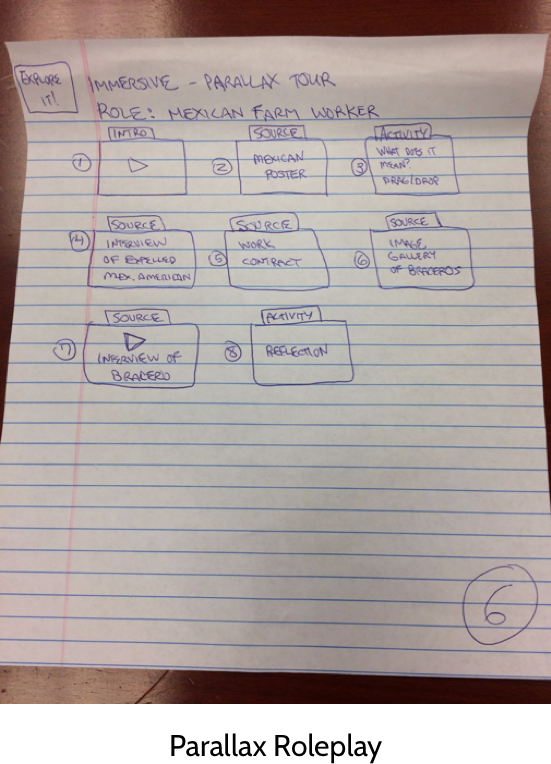 EXPLORE
IT!
IMMERSIVE - PARALLAX TOUR
ROLE: MEXICAN FARM WORKER
INTRO
1
SOURCE
2
MEXICAN
POSTER
ACTIVITY
3
WHAT DOES IT
MEAN?
DRAG/DROP
SOURCE
4
INTERVIEW
OF EXPELLED
MEX. AMERICAN
SOURCE
5
WORK
CONTRACT
SOURCE
6
IMAGE
GALLERY
OF BRACEROS
SOURCE
7
INTERVIEW OF
BRACERO
ACTIVITY
8
REFLECTION
6
Parallax Roleplay